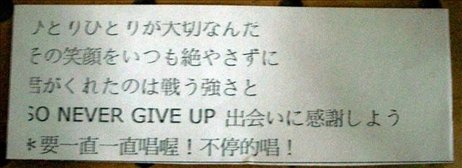 ひとりひとりが大切なんだ
その笑顔をいつも絶やさずに
君がくれたのは戦う強さと
SO NEVER GIVE UP 出会いに感謝しよう
*要一直一直唱喔！不停的唱！